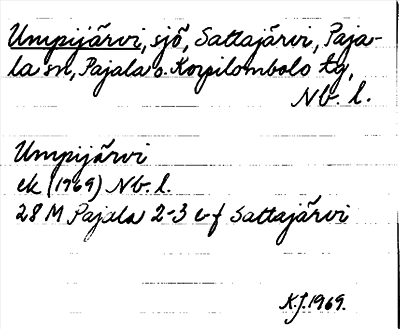 Umpijärvi, sjö, Sattajärvi, Paja-
la sn, Pajala o. Korpilombolo tg,
Nb. l.
Umpijärvi
ek (1969) Nb. l.
28 M Pajala 2-3 e-f Sattajärvi
K.J. 1969.